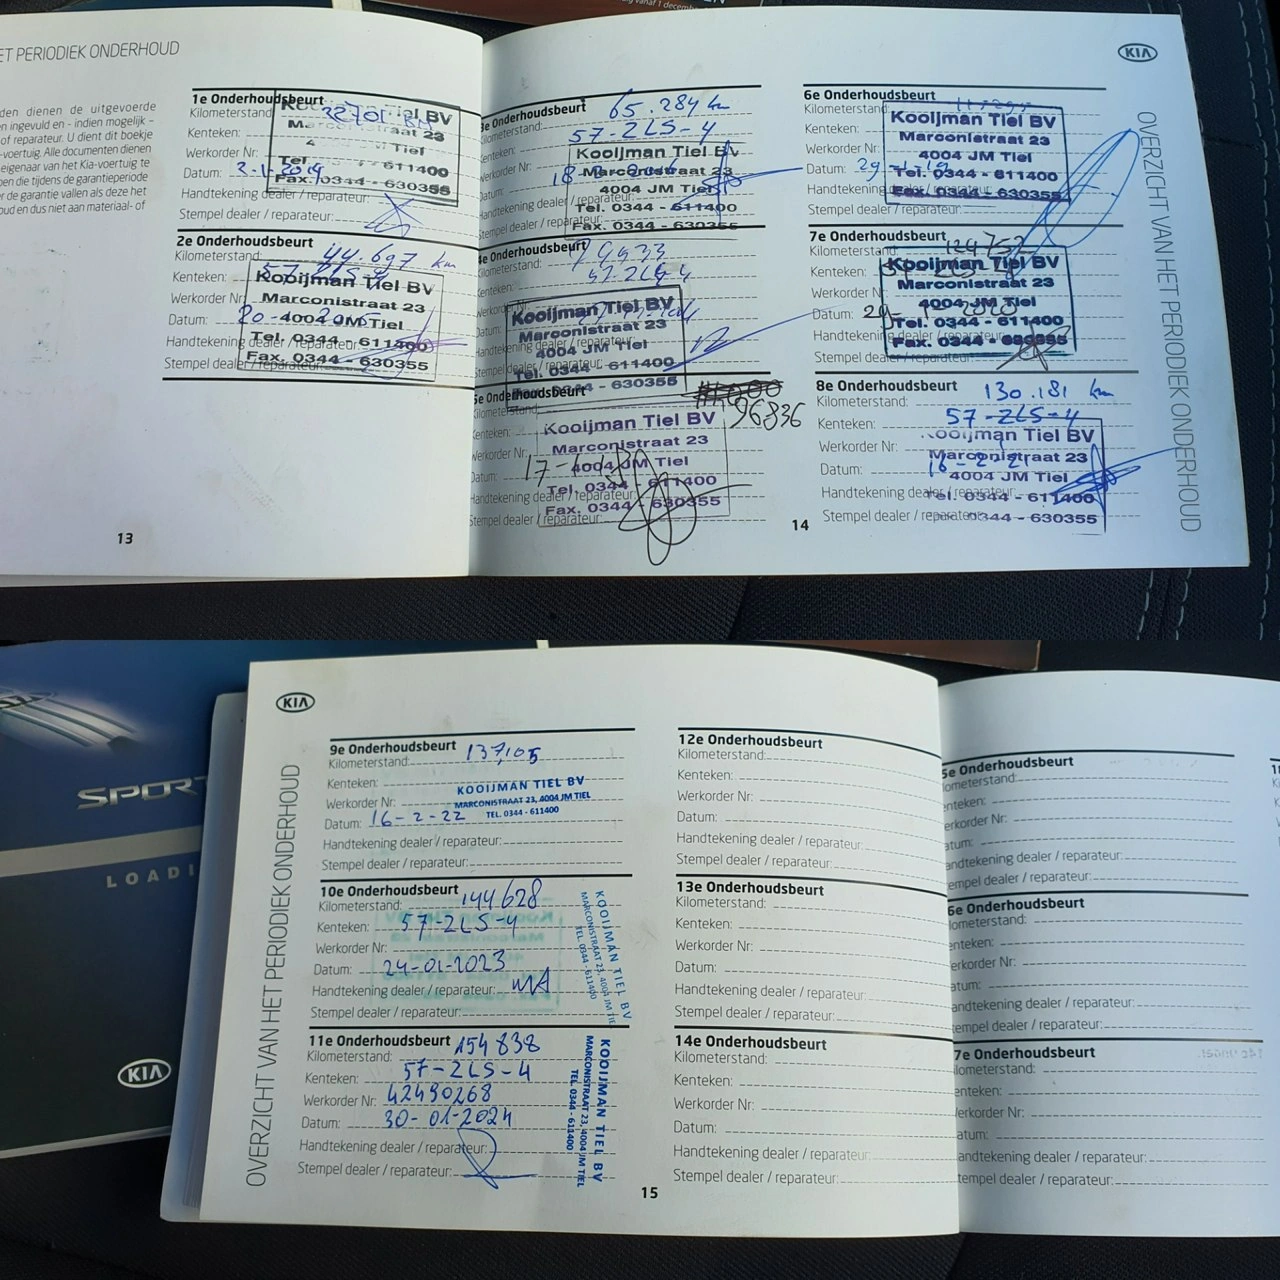 ET PERIODIEK ONDERHOUD
den dienen de uitgevoerde
n ingevuld en - indien mogelijk -
of reparateur. U dient dit boekje
-voertuig. Alle documenten dienen
eigenaar van het Kia-voertuig te
pen die tijdens de garantieperiode
r de garantie vallen als deze het
oud en dus niet aan materiaal- of
1e Onderhoudsbeurt
Kilometerstand:
Kenteken:
Werkorder Nr:
Datum:
Handtekening dealer / reparateur:
Stempel dealer / reparateur:
Tiel BV
Tiel
Tel.
611400
Fax. 0344 - 630355
2e Onderhoudsbeurt
Kilometerstand: 44.697 km
Kenteken:
Werkorder Nr
Datum:
Handtekening dealer / reparateur:
Stempel dealer / reparateur:
Kooijman Tiel BV
Marconistraat 23
4004 JM Tiel
Tel. 0344 - 611400
Fax. 0344 - 630355
13
e Onderhoudsbeurt
65.284 km
57-ZLS-4
Kooijman Tiel BV
Marconistraat 23
4004 JM Tiel
Tel. 0344 - 611400
Fax. 0344 - 630355
Handtekening dealer / reparateur:
Stempel dealer / reparateur:
e Onderhoudsbeurt
Kooijman Tiel BV
Marconistraat 23
4004 JM Tiel
Tel. 0344 - 611400
5e Onderhoudsbeurt
96836
Kenteken:
Werkorder Nr:
Datum:
Handtekening dealer / reparateur:
Stempel dealer / reparateur:
Kooijman Tiel BV
Marconistraat 23
4004 JM Tiel
Tel. 0344 - 611400
Fax. 0344 - 630355
KIA
6e Onderhoudsbeurt
Kilometerstand:
Kenteken:
Werkorder Nr:
Datum:
Handtekening
Stempel dealer / reparateur:
Kooijman Tiel BV
Marconistraat 23
4004 JM Tiel
Tel. 0344 - 611400
Fax. 0344 - 630355
7e Onderhoudsbeurt
Kilometerstand: 124752
Kenteken:
Werkorder Nr
Datum:
Handtekening
Stempel dealer / reparateur:
Kooijman Tiel BV
Marconistraat 23
4004 JM Tiel
Tel. 0344 - 611400
Fax. 0344 - 630355
8e Onderhoudsbeurt
Kilometerstand: 130.181 km
Kenteken: 57-ZLS-4
Werkorder Nr:
Datum: 16-2-21
Handtekening dealer / reparateur:
Stempel dealer / reparateur:
ooijman Tiel BV
Marconistraat 23
4004 JM Tiel
Tel. 0344 - 611400
0344 - 630355
14
OVERZICHT VAN HET PERIODIEK ONDERHOUD
SPORT
LOADI
KIA
KIA
OVERZICHT VAN HET PERIODIEK ONDERHOUD
9e Onderhoudsbeurt
Kilometerstand: 137,105
Kenteken:
Werkorder Nr:
Datum: 16-2-22
Handtekening dealer / reparateur:
Stempel dealer / reparateur:
KOOIJMAN TIEL BV
MARCONISTRAAT 23, 4004 JM TIEL
TEL. 0344 - 611400
10e Onderhoudsbeurt
Kilometerstand: 144628
Kenteken: 57-ZLS-4
Werkorder Nr:
Datum: 24-01-2023
Handtekening dealer / reparateur:
Stempel dealer / reparateur:
KOOIJMAN TIEL BV
MARCONISTRAAT 23, 4004 JM TIE
TEL. 0344 - 611400
11e Onderhoudsbeurt
Kilometerstand: 154838
Kenteken: 57-ZLS-4
Werkorder Nr: 42490268
Datum: 30-01-2024
Handtekening dealer / reparateur:
Stempel dealer / reparateur:
KOOIJMAN TIEL BV
MARCONISTRAAT 23, 4004 JM TIEL
TEL. 0344 - 611400
15
12e Onderhoudsbeurt
Kilometerstand:
Kenteken:
Werkorder Nr:
Datum:
Handtekening dealer / reparateur:
Stempel dealer / reparateur:
13e Onderhoudsbeurt
Kilometerstand:
Kenteken:
Werkorder Nr:
Datum:
Handtekening dealer / reparateur:
Stempel dealer / reparateur:
14e Onderhoudsbeurt
Kilometerstand:
Kenteken:
Werkorder Nr:
Datum:
Handtekening dealer / reparateur:
Stempel dealer / reparateur:
5e Onderhoudsbeurt
ometerstand:
nteken:
erkorder Nr:
atum:
andtekening dealer / reparateur:
empel dealer / reparateur:
6e Onderhoudsbeurt
lometerstand:
enteken:
erkorder Nr:
atum:
andtekening dealer / reparateur:
empel dealer / reparateur:
7e Onderhoudsbeurt
lometerstand:
enteken:
erkorder Nr:
atum:
andtekening dealer / reparateur:
tempel dealer / reparateur: